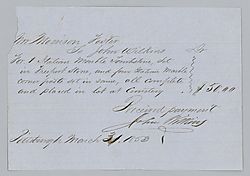 Mr Morrison Foster
To John Wilkins Dr
For 1 Italian Marble Tombstone, Set
in Freeport Stone, and four Italian Marble
corner posts set in same, all complete
and placed in lot at Cemetery $50.00
Received payment
John Wilkins
Pittsburgh March 31 1853